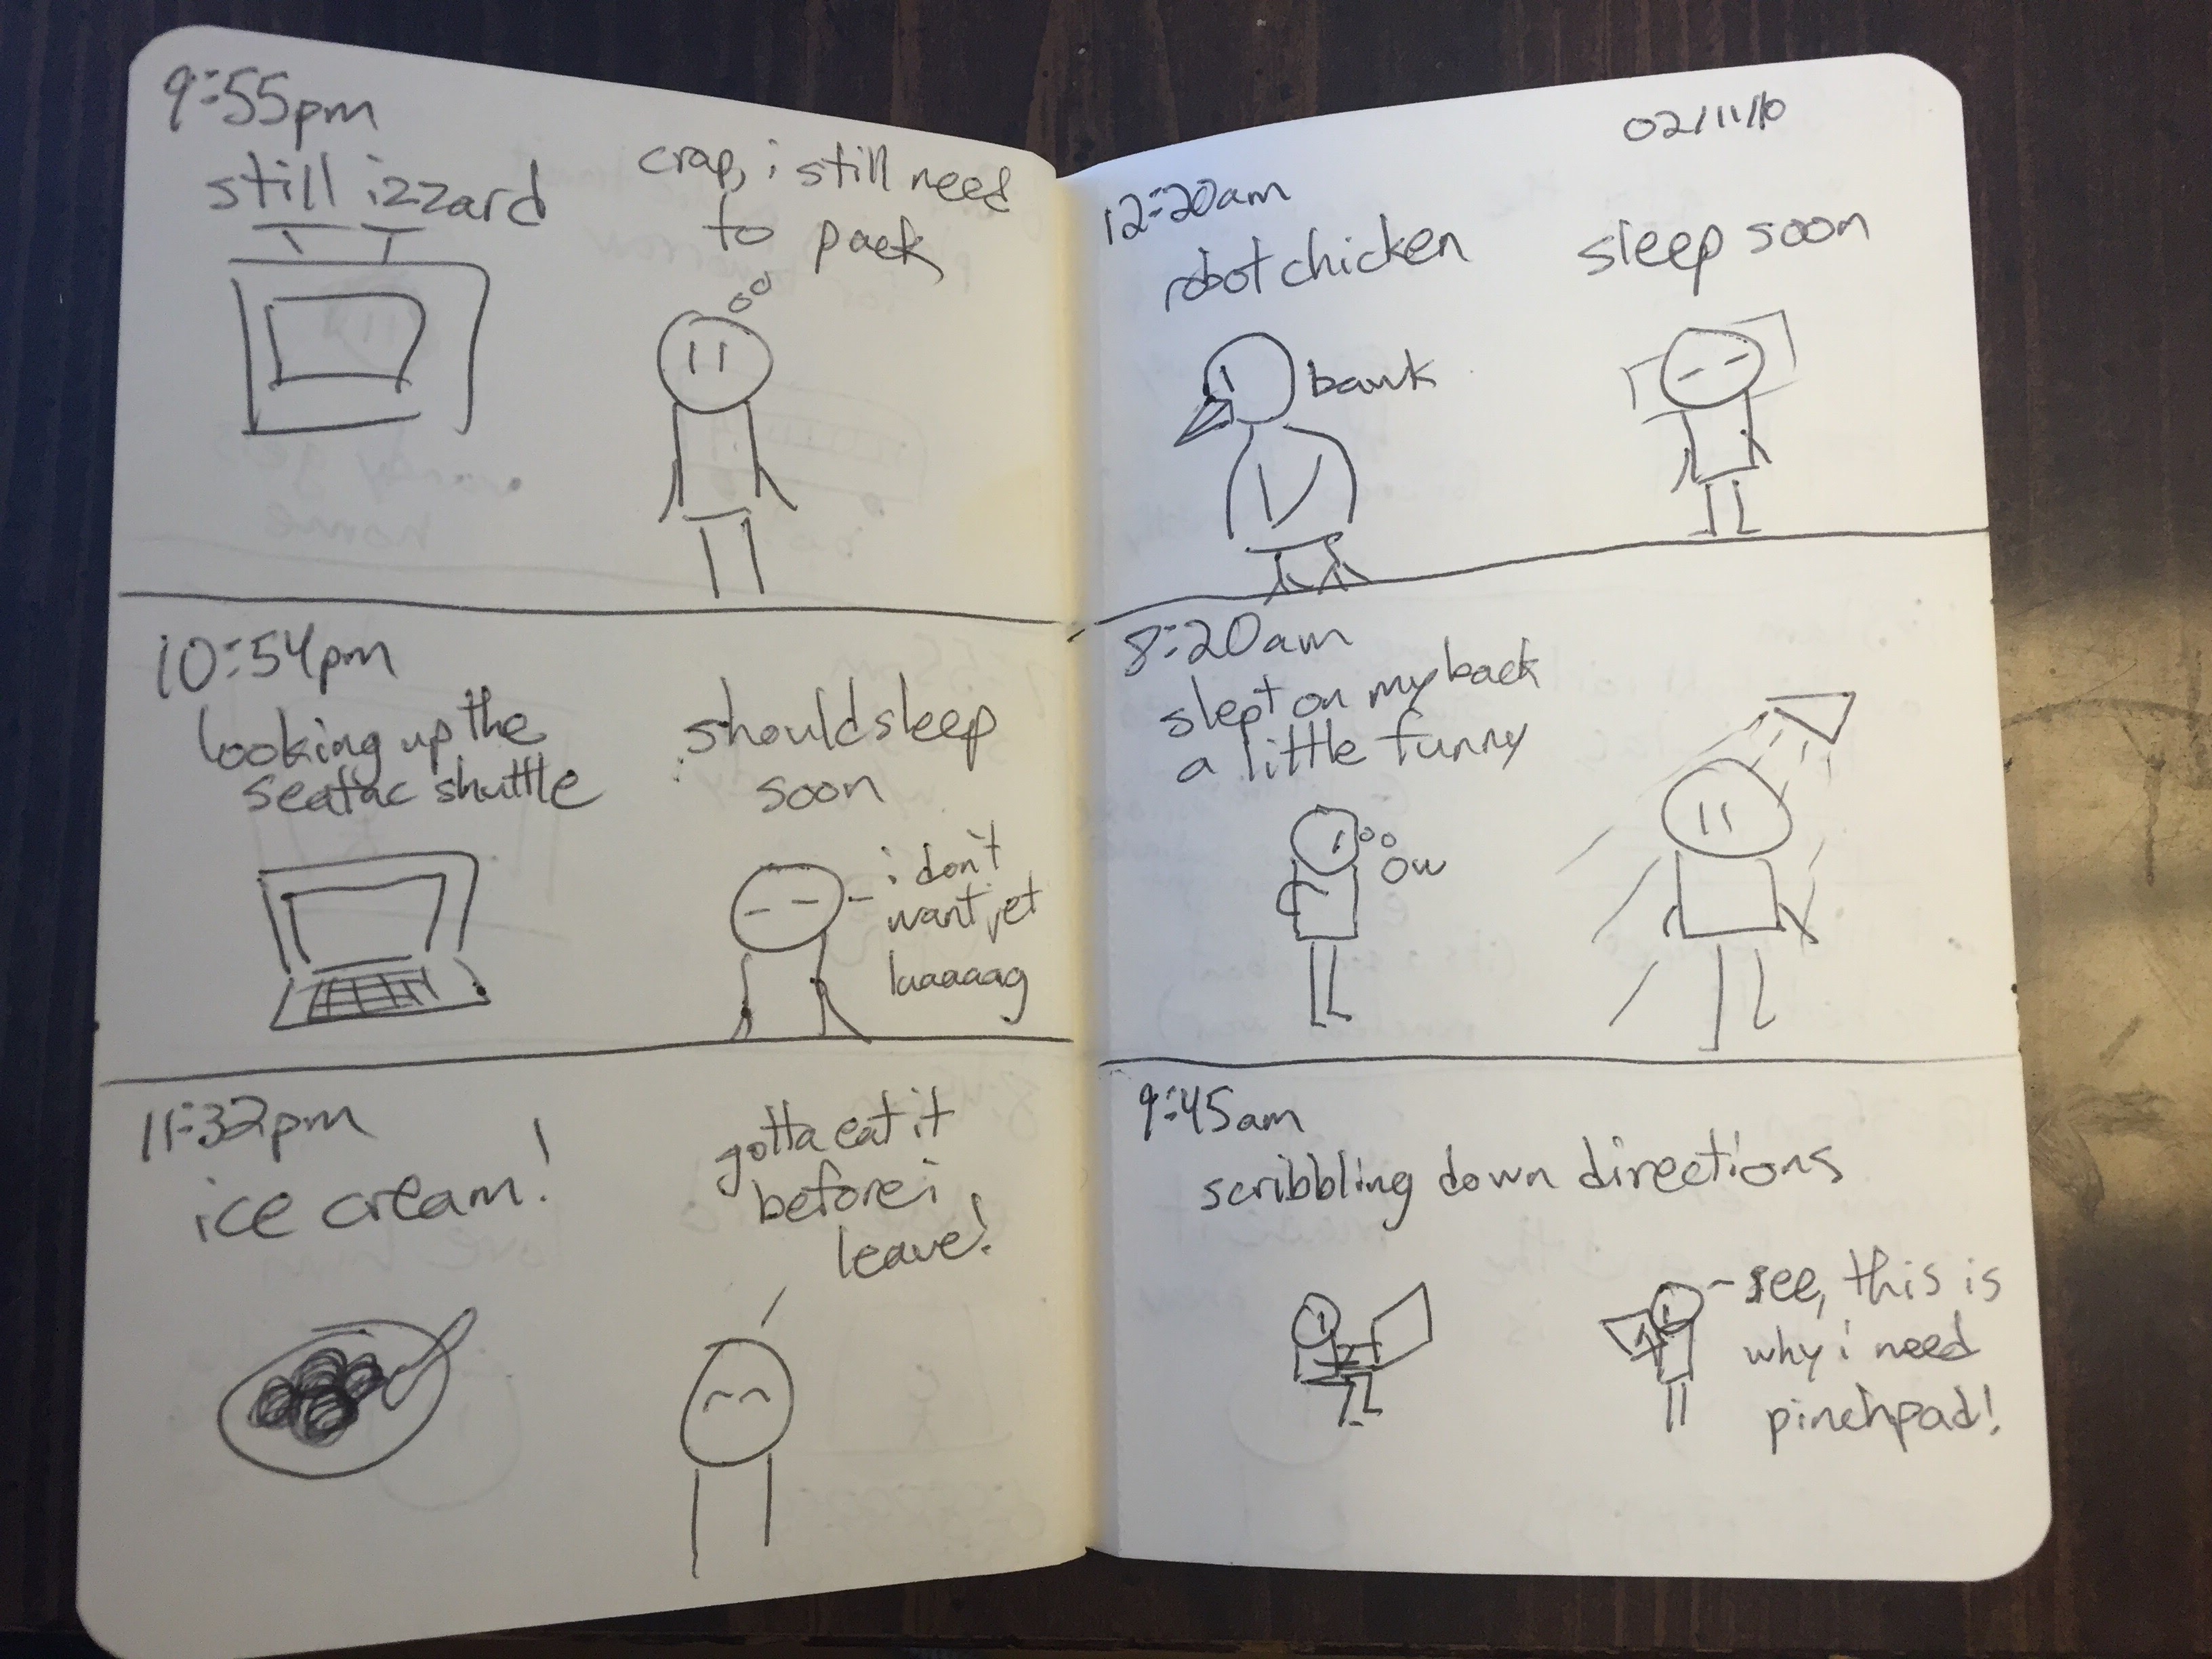 9:55pm
still izzard
crap, i still need
to pack
10:54pm
looking up the
seatac shuttle
should sleep
soon
- i don't
want jet
laaaaag
11:32pm
ice cream!
gotta eat it
before i
leave!
02/11/10
12:20am
robot chicken
bawk
sleep soon
8:20am
slept on my back
a little funny
ow
9:45am
scribbling down directions
- see, this is
why i need
pinchpad!